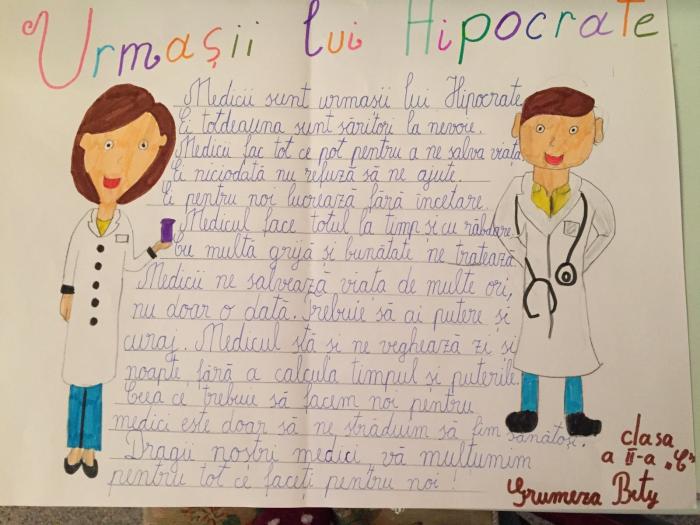 Urmașii lui Hipocrate
Medicii sunt urmașii lui Hipocrate
Ei totdeauna sunt săritori la nevoie.
Medicii fac tot ce pot pentru a ne salva viața
Ei niciodată nu refuză să ne ajute.
Ei pentru noi lucrează fără încetare.
Medicul face totul la timp și cu răbdare
Cu multă grijă și bunătate ne tratează.
Medicii ne salvează viața de multe ori,
nu doar o dată. Trebuie să ai putere și
curaj. Medicul stă și ne veghează zi și
noapte, fără a calcula timpul și puterile.
Ceea ce trebuie să facem noi pentru
medici este doar să ne străduim să fim sănătoși.
Dragii noștri medici vă mulțumim
pentru tot ce faceți pentru noi!
clasa
a II-a „C"
Grumeza Bety